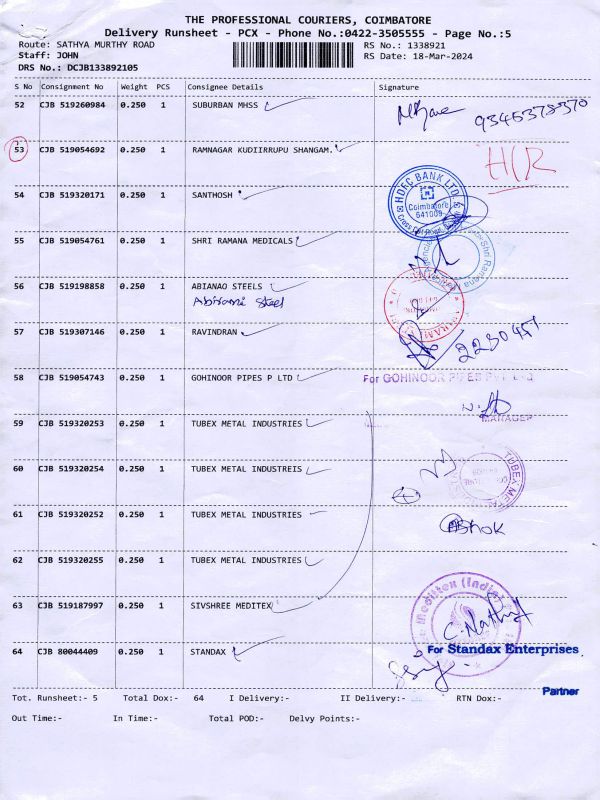 THE PROFESSIONAL COURIERS, COIMBATORE
Delivery Runsheet - PCX - Phone No.:0422-3505555 - Page No.:5
Route: SATHYA MURTHY ROAD RS No.: 1338921
Staff: JOHN RS Date: 18-Mar-2024
DRS No.: DCJB133892105
S No Consignment No Weight PCS Consignee Details Signature
52 CJB 519260984 0.250 1 SUBURBAN MHSS 9345378370
53 CJB 519054692 0.250 1 RAMNAGAR KUDIIRRUPU SHANGAM.
54 CJB 519320171 0.250 1 SANTHOSH
HDFC BANK LTD.
Coimbatore
641009
55 CJB 519054761 0.250 1 SHRI RAMANA MEDICALS
Shri Ramana
56 CJB 519198858 0.250 1 ABIANAO STEELS
Abirami Steel
57 CJB 519307146 0.250 1 RAVINDRAN 2230451
58 CJB 519054743 0.250 1 GOHINOOR PIPES P LTD For GOHINOOR PIPES PVT LTD
MANAGER
59 CJB 519320253 0.250 1 TUBEX METAL INDUSTRIES
60 CJB 519320254 0.250 1 TUBEX METAL INDUSTREIS
TUBEX METAL
61 CJB 519320252 0.250 1 TUBEX METAL INDUSTRIES Ashok
62 CJB 519320255 0.250 1 TUBEX METAL INDUSTRIES
63 CJB 519187997 0.250 1 SIVSHREE MEDITEX
Meditex (India)
C. Nathiy
64 CJB 80044409 0.250 1 STANDAX For Standax Enterprises
Partner
Tot. Runsheet:- 5 Total Dox:- 64 I Delivery:- II Delivery:- RTN Dox:-
Out Time:- In Time:- Total POD:- Delvy Points:-